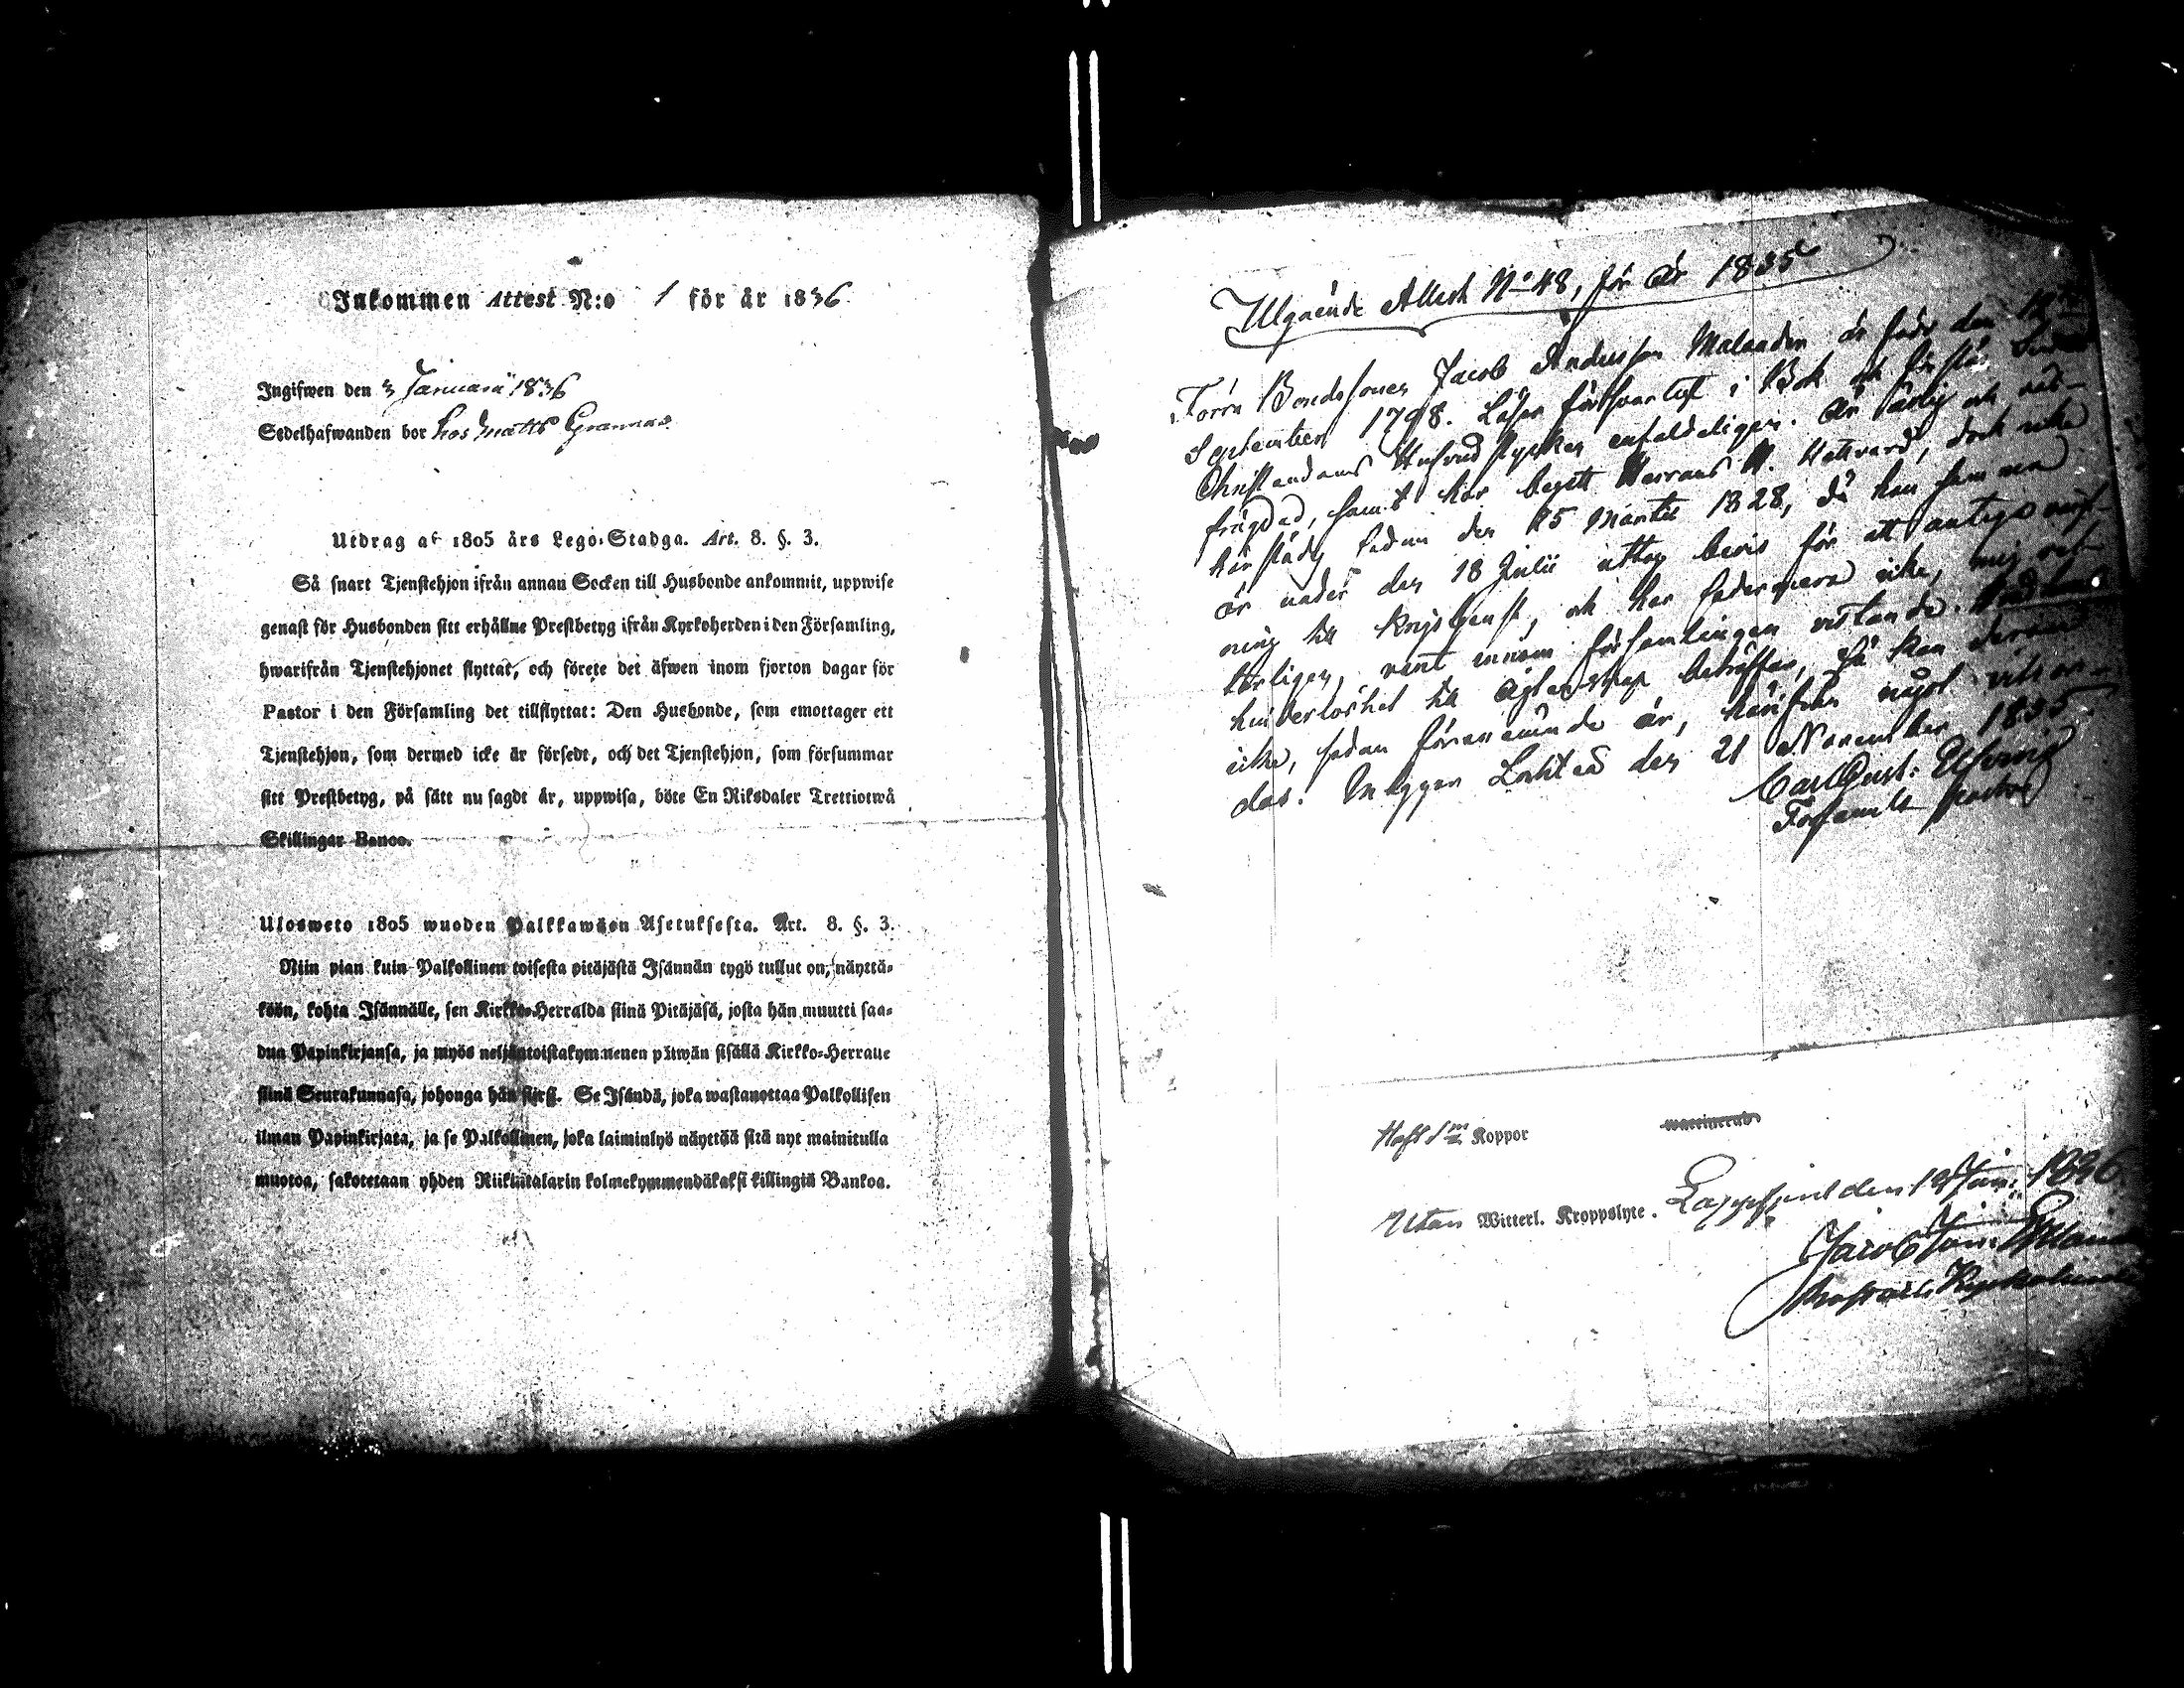 Inkommen Attest N:o 1 för år 1836
Ingifwen den 3 Januarii 1836
Sedelhafwanden bor hos Matts Grannas
Utdrag af 1805 års Lego-Stadga. Art. 8. §. 3.
Så snart Tjenstehjon ifrån annan Socken till Husbonde ankommit, uppwise
genast för Husbonden sitt erhållne Prestbetyg ifrån Kyrkoherden i den Församling,
hwarifrån Tjenstehjonet flyttat, och förete det äfwen inom fjorton dagar för
Pastor i den Församling det tillflyttat: Den Husbonde, som emottager ett
Tjenstehjon, som dermed icke är försedt, och det Tjenstehjon, som försummar
sitt Prestbetyg, på sätt nu sagdt är, uppwisa, böte En Riksdaler Trettiotwå
Skillingar Banco.
Ulosweto 1805 wuoden Palkkawäen Asetuksesta. Art. 8. §. 3.
Niin pian kuin Palkollinen toisesta pitäjästä Isännän tygö tullut on, näyttä-
köön, kohta Isännälle, sen Kirkko-Herralda siinä Pitäjäsä, josta hän muutti saa-
dun Papinkirjansa, ja myös neljäntoistakymmenen päiwän sisällä Kirkko-Herralle
siinä Seurakunnasa, johonga hän siirsi. Se Isändä, joka wastanottaa Palkollisen
ilman Papinkirjata, ja se Palkollinen, joka laiminlyö näyttää sitä nyt mainitulla
muotoa, sakotetaan yhden Riikintalarin kolmekymmendäkaksi killingiä Bankoa.
Utgående Attest No 48, för år 1835
Förra Bondesonen Jacob Andersson Malanden är född den 12
September 1798. Läser försvarligt i Bok och förstår
Christendoms Hufvudstycken enfaldeligen. Är ärlig och
frägdad, samt har begått Herrans H. Nattvard, dock icke
härstädes sedan den 25 Martii 1828, då han samma
år under den 18 Julii uttog bevis för att antaga
ning till Krigstjenst, och har sedermera icke, mig
terligen, varit innom församlingen vistande.
hinderlöshet till ägtenskap beträffar, så kan derom
icke, sedan förenämnde år, härifrån något vitsor-
das. Intygar Lochteå den 21 November 1835.
Carl Gust:
Församls pastor
Haft Koppor
Utan Witterl. Kroppslyte. Lappfjerd den 1836
Jacob